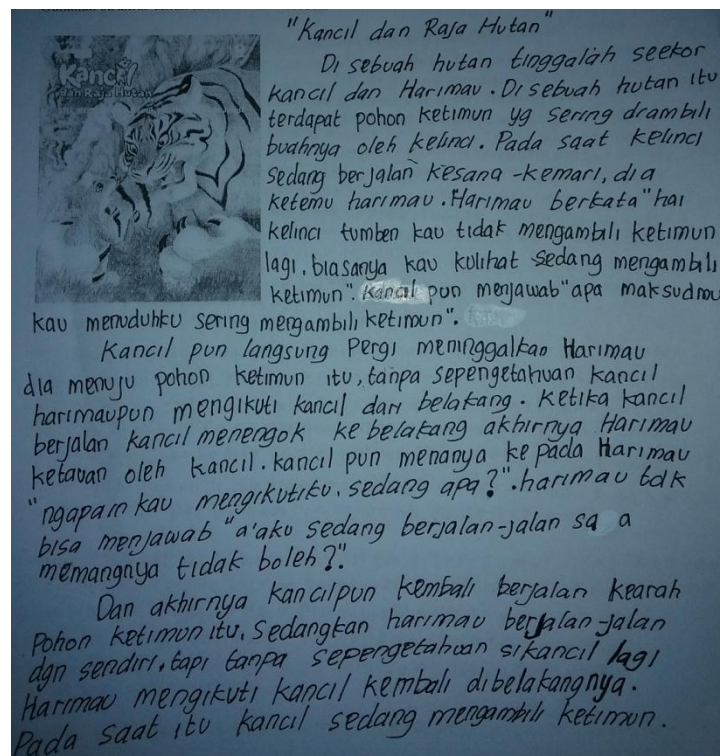 "Kancil dan Raja Hutan"
Kancil
dan Raja Hutan
Di sebuah hutan tinggalah seekor
kancil dan Harimau. Di sebuah hutan itu
terdapat pohon ketimun yg sering diambili
buahnya oleh kelinci. Pada saat kelinci
sedang berjalan kesana-kemari, dia
ketemu harimau. Harimau berkata "hai
kelinci tumben kau tidak mengambili ketimun
lagi, biasanya kau kulihat sedang mengambili
ketimun". Kancil pun menjawab "apa maksudmu
kau menuduhku sering mengambili ketimun".
Kancil pun langsung pergi meninggalkan Harimau
dia menuju pohon ketimun itu, tanpa sepengetahuan kancil
harimaupun mengikuti kancil dari belakang. Ketika kancil
berjalan kancil menengok ke belakang akhirnya Harimau
ketauan oleh kancil. kancil pun menanya kepada Harimau
"ngapain kau mengikutiku, sedang apa?". harimau tdk
bisa menjawab "a'aku sedang berjalan-jalan sa a
memangnya tidak boleh?".
Dan akhirnya kancilpun kembali berjalan kearah
Pohon ketimun itu, Sedangkan harimau berjalan-jalan
dgn sendiri, tapi tanpa sepengetahuan sikancil lagi
Harimau mengikuti kancil kembali dibelakangnya.
Pada saat itu kancil sedang mengambili ketimun.